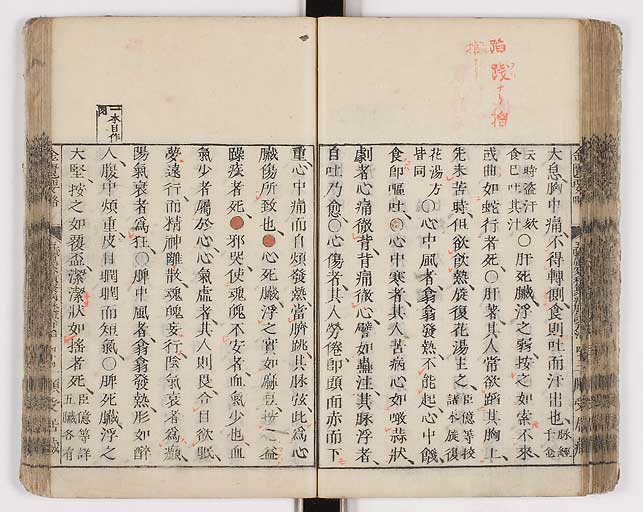 大息胸中痛不得轉側食則吐而汗出也脈經千金
云時盜汗欬食已吐其汁○肝死臟浮之弱按之如索不來
或曲如蛇行者死○肝著其人常欲蹈其胸上
先未苦時但欲飲熱旋復花湯主之臣億等挍諸本旋復
花湯方皆同○心中風者翕翕發熱不能起心中饑
食即嘔吐○心中寒者其人苦病心如噉蒜狀
劇者心痛徹背背痛徹心譬如蟲注其脉浮者
自吐乃愈○心傷者其人勞倦即頭面赤而下
重心中痛而自煩發熱當臍跳其脉弦此為心
臟傷所致也●心死臟浮之實如麻豆按之益
躁疾者死●邪哭使魂魄不安者血氣少也血
氣少者屬於心心氣虛者其人則畏合目欲眠
夢遠行而精神離散魂魄妄行陰氣衰者為癲
陽氣衰者為狂○脾中風者翕翕發熱形如醉
人腹中煩重皮目瞤瞤而短氣○脾死臟浮之
大堅按之如覆盃潔潔狀如搖者死臣億等詳五臟各有
一本目作肉
金匱要略